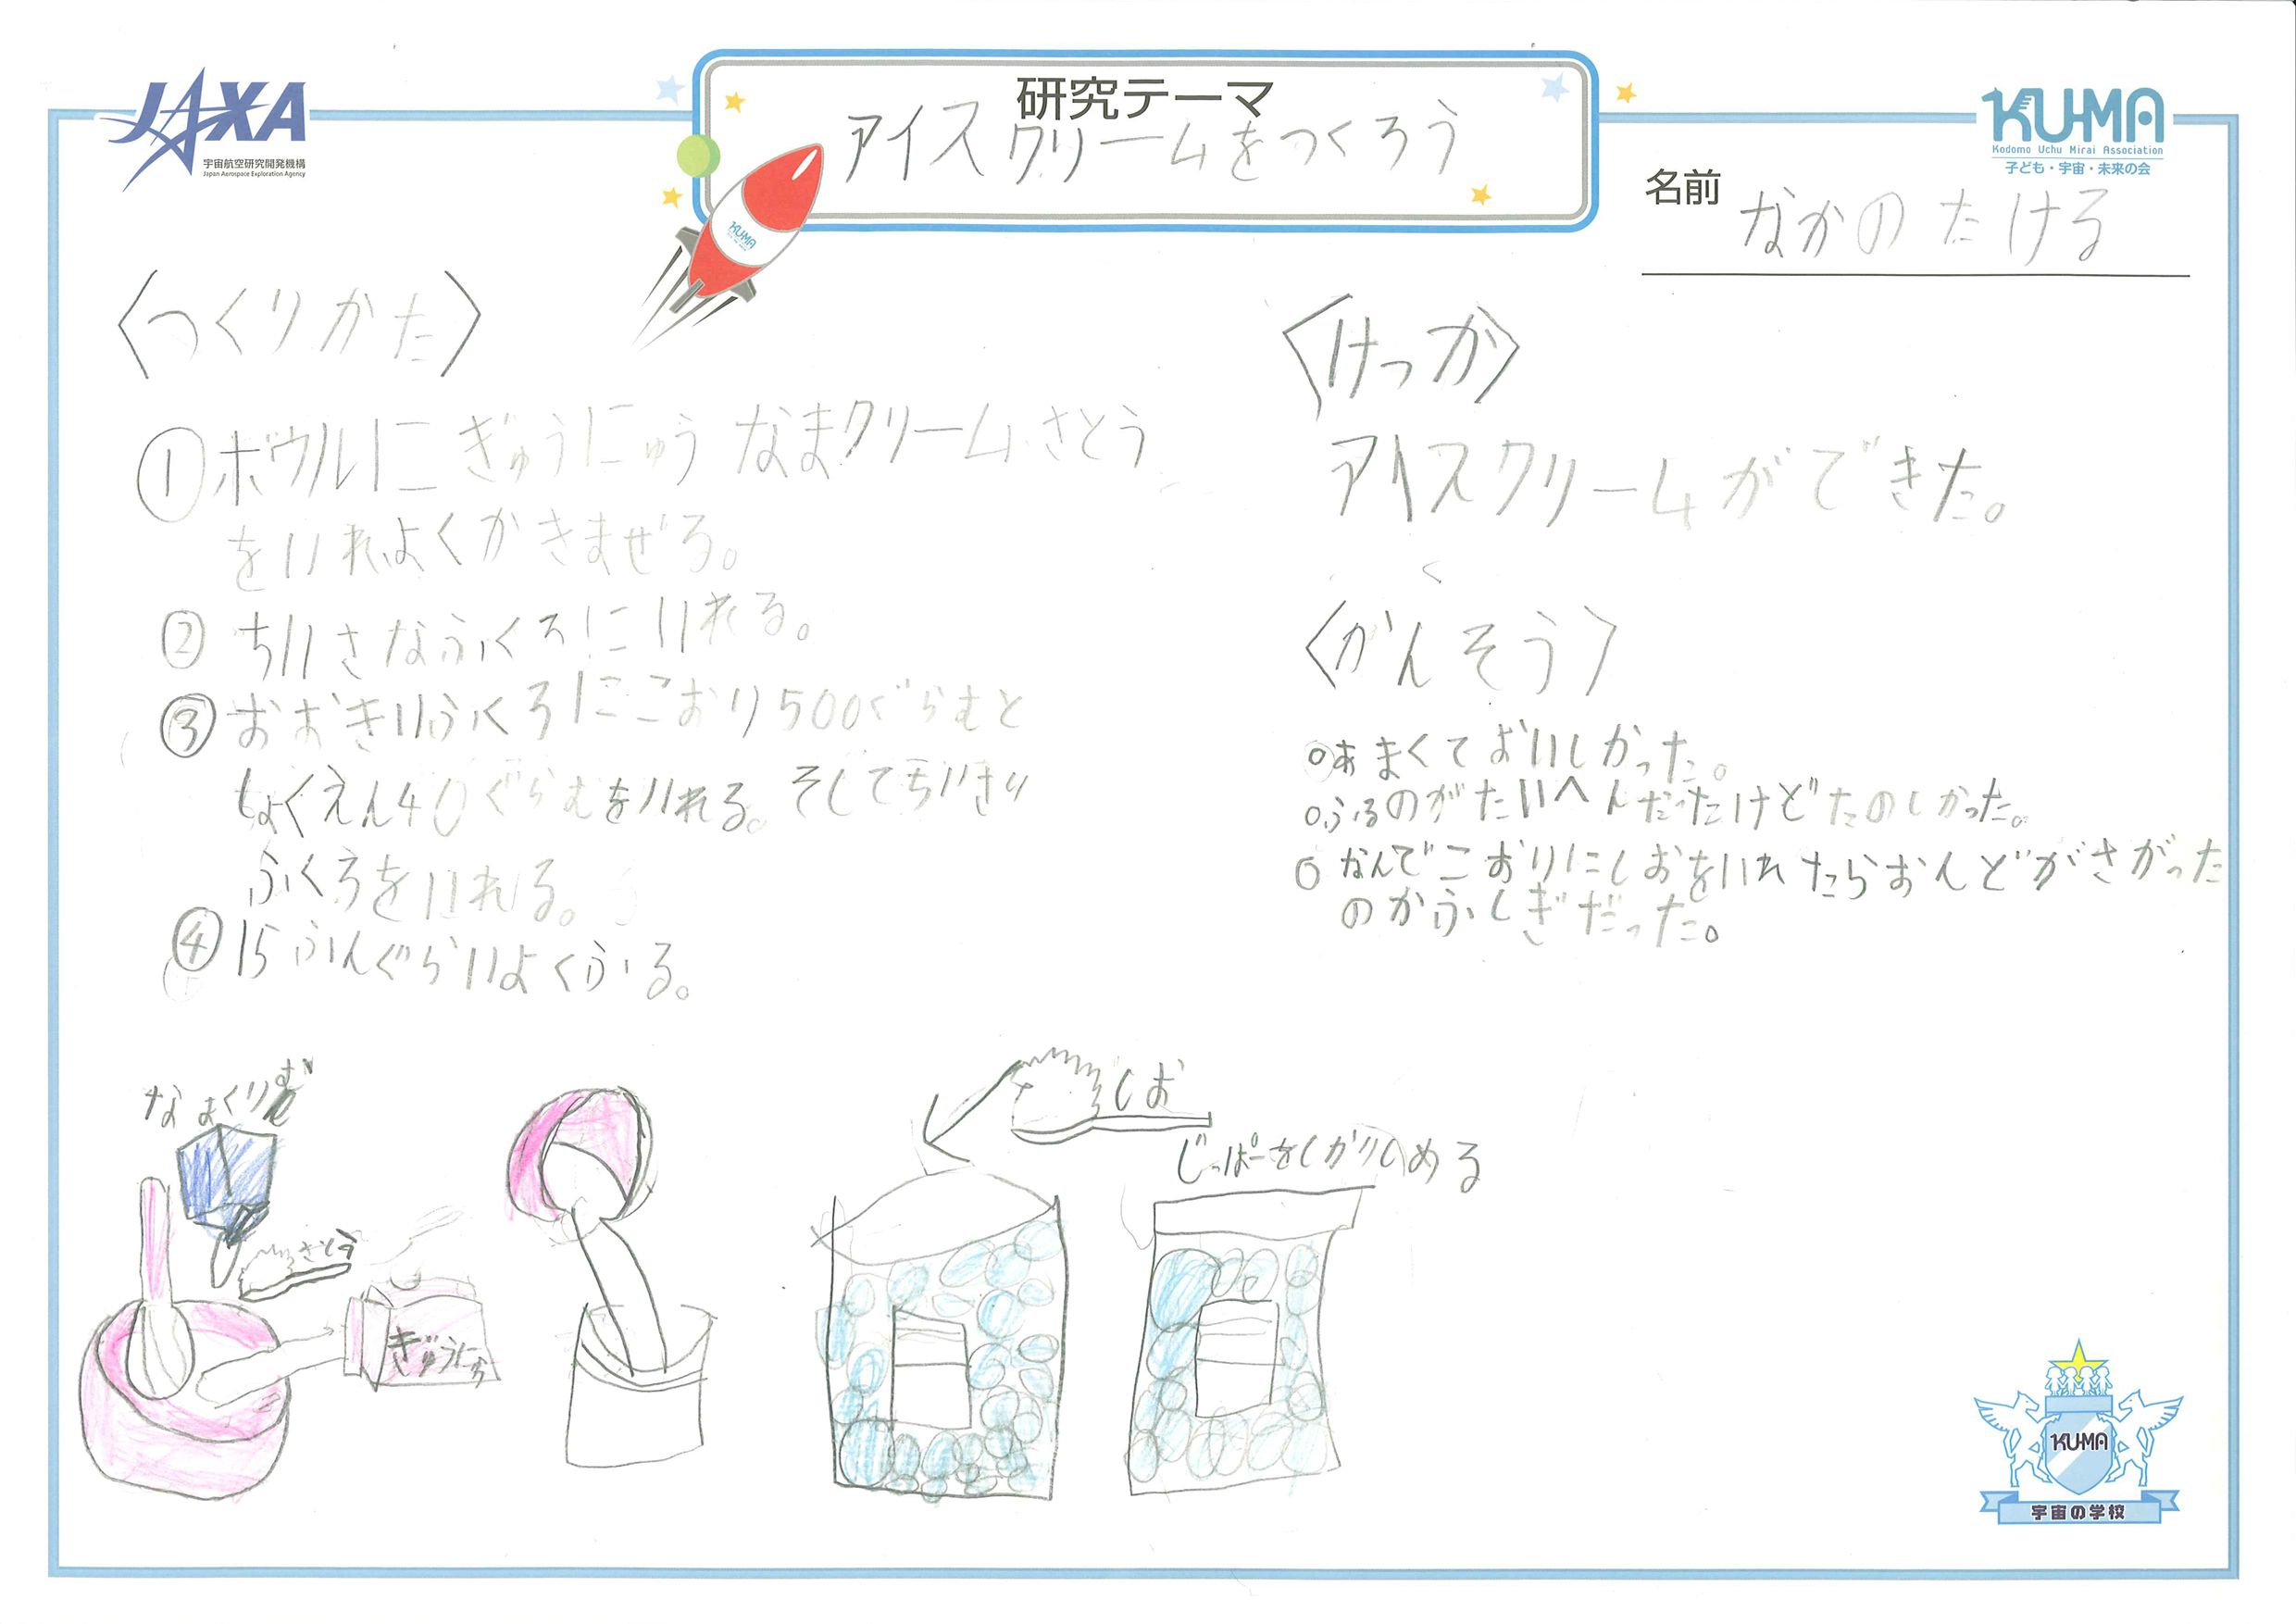 JAXA
宇宙航空研究開発機構
Japan Aerospace Exploration Agency
研究テーマ
アイスクリームをつくろう
KUMA
KU-MA
Kodomo Uchu Mirai Association
子ども・宇宙・未来の会
名前 なかの たける
〈つくりかた〉
①ボウルにぎゅうにゅうなまクリーム.さとう
をいれよくかきまぜる。
②ちいさなふくろにいれる。
③おおきいふくろにこおり500ぐらむと
しょくえん40ぐらむをいれる。そしてちいさい
ふくろをいれる。
④15ふんぐらいよくふる。
〈けっか〉
アイスクリームができた。
〈かんそう〉
○あまくておいしかった。
○ふるのがたいへんだったけどたのしかった。
○なんでこおりにしおをいれたらおんどがさがった
のかふしぎだった。
なまくりむ
さとう
ぎゅうにゅう
しお
じっぱーをしっかりしめる
KU-MA
宇宙の学校